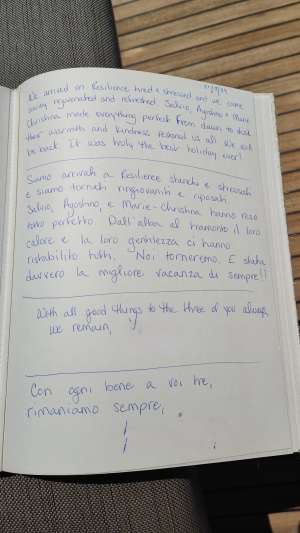 We arrived on Resilience tired & stressed and we came
away rejuvenated and refreshed. Salvio, Agostino & Marie
Christina made everything perfect. From dawn to dusk
their warmth and kindness restored us all. We will
be back. It was truly the best holiday ever!
Siamo arrivati a Resilience stanchi e stressati
e siamo tornati ringiovaniti e riposati.
Salvio, Agostino, e Marie-Christina hanno reso
tutto perfetto. Dall'alba al tramonto il loro
calore e la loro gentilezza ci hanno
ristabilito tutti. Noi torneremo. È stata
davvero la migliore vacanza di sempre!!
With all good things to the three of you always,
we remain,
Con ogni bene a voi tre,
rimaniamo sempre,